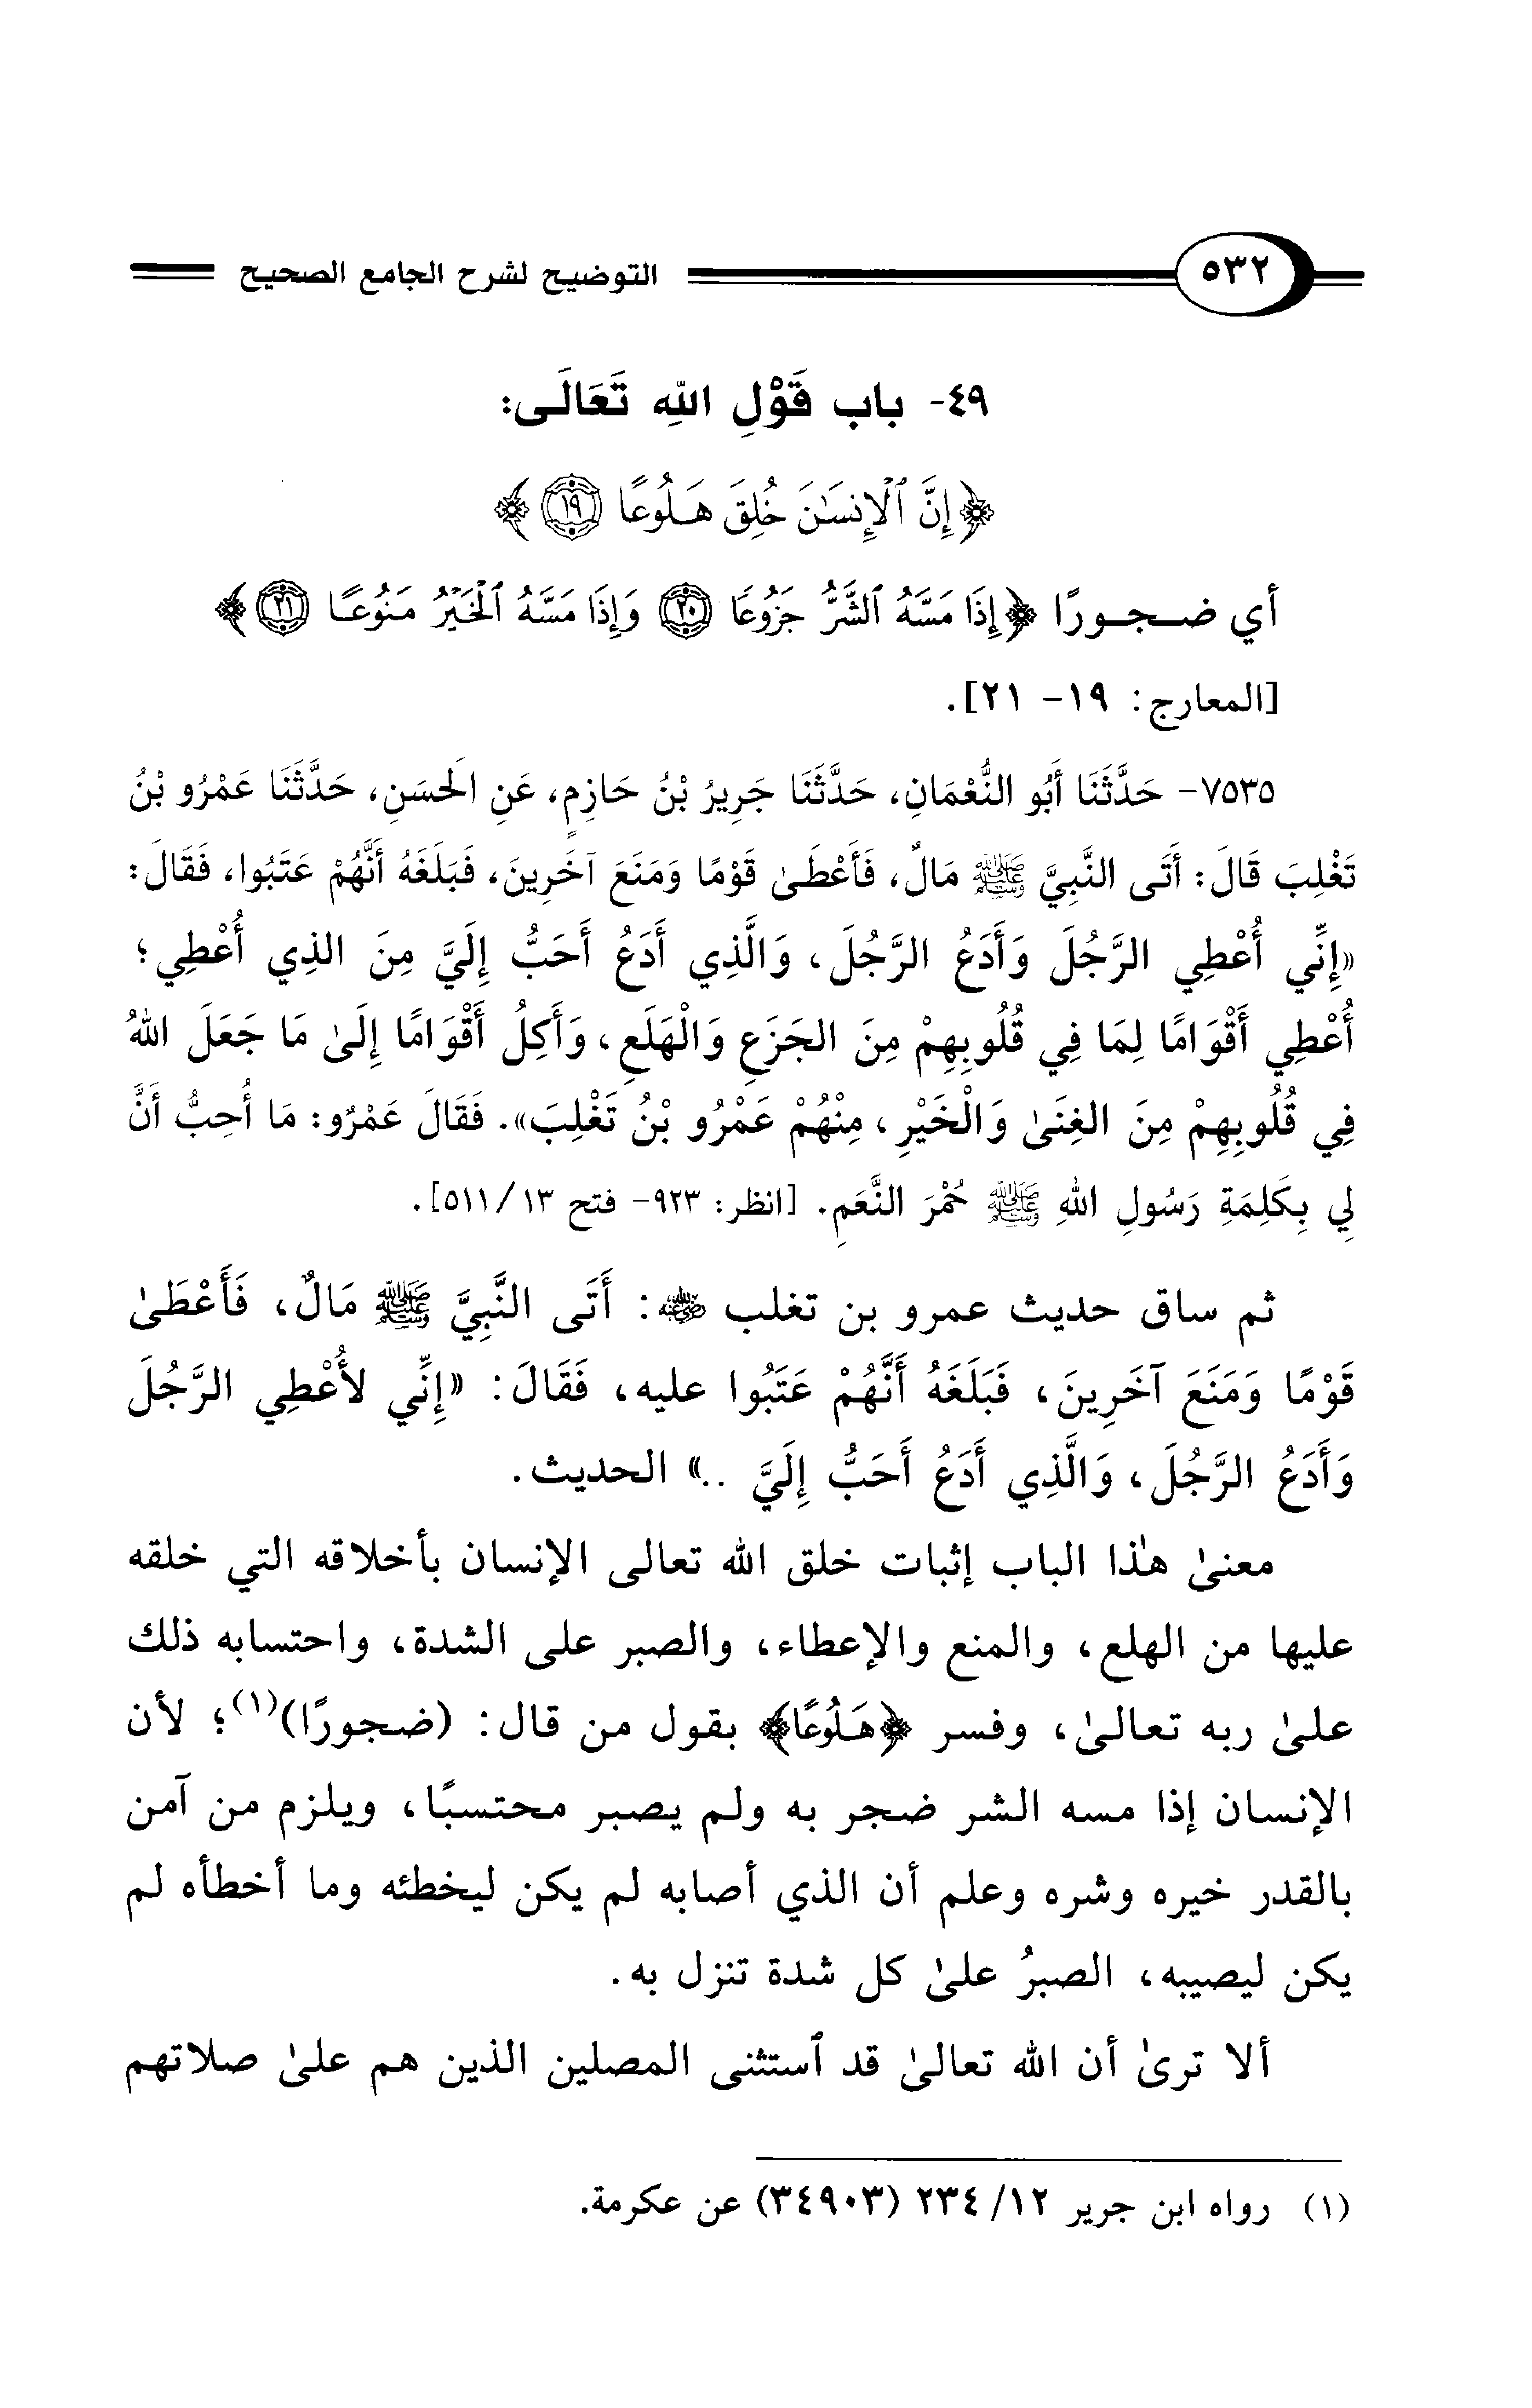 ٥٣٢ التوضيح لشرح الجامع الصحيح
٤٩- باب قَوْلِ اللهِ تَعَالَى:
﴿إِنَّ ٱلْإِنسَٰنَ خُلِقَ هَلُوعًا ١٩﴾
أي ضجورًا ﴿إِذَا مَسَّهُ ٱلشَّرُّ جَزُوعًا ٢٠ وَإِذَا مَسَّهُ ٱلْخَيْرُ مَنُوعًا ٢١﴾
[المعارج: ١٩- ٢١].
٧٥٣٥- حَدَّثَنَا أَبُو النُّعْمَانِ، حَدَّثَنَا جَرِيرُ بْنُ حَازِمٍ، عَنِ الَحسَنِ، حَدَّثَنَا عَمْرُو بْنُ
تَغْلِبَ قَالَ: أَتَى النَّبِيَّ ﷺ مَالٌ، فَأَعْطَىٰ قَوْمًا وَمَنَعَ آخَرِينَ، فَبَلَغَهُ أَنَّهُمْ عَتَبُوا، فَقَالَ:
«إِنِّي أُعْطِي الرَّجُلَ وَأَدَعُ الرَّجُلَ، وَالَّذِي أَدَعُ أَحَبُّ إِلَيَّ مِنَ الذِي أُعْطِي؛
أُعْطِي أَقْوَامًا لِمَا فِي قُلُوبِهِمْ مِنَ الجَزَعِ وَالْهَلَعِ، وَأَكِلُ أَقْوَامًا إِلَىٰ مَا جَعَلَ اللهُ
فِي قُلُوبِهِمْ مِنَ الغِنَىٰ وَالْخَيْرِ، مِنْهُمْ عَمْرُو بْنُ تَغْلِبَ». فَقَالَ عَمْرٌو: مَا أُحِبُّ أَنَّ
لِي بِكَلِمَةِ رَسُولِ اللهِ ﷺ حُمْرَ النَّعَمِ. [انظر: ٩٢٣- فتح ١٣/ ٥١١].
ثم ساق حديث عمرو بن تغلب ﷺ: أَتَى النَّبِيَّ ﷺ مَالٌ، فَأَعْطَىٰ
قَوْمًا وَمَنَعَ آخَرِينَ، فَبَلَغَهُ أَنَّهُمْ عَتَبُوا عليه، فَقَالَ: «إِنِّي لأُعْطِي الرَّجُلَ
وَأَدَعُ الرَّجُلَ، وَالَّذِي أَدَعُ أَحَبُّ إِلَيَّ ..» الحديث.
معنىٰ هٰذا الباب إثبات خلق الله تعالى الإنسان بأخلاقه التي خلقه
عليها من الهلع، والمنع والإعطاء، والصبر على الشدة، واحتسابه ذلك
علىٰ ربه تعالىٰ، وفسر ﴿هَلُوعًا﴾ بقول من قال: (ضجورًا)(١)؛ لأن
الإنسان إذا مسه الشر ضجر به ولم يصبر محتسبًا، ويلزم من آمن
بالقدر خيره وشره وعلم أن الذي أصابه لم يكن ليخطئه وما أخطأه لم
يكن ليصيبه، الصبرُ علىٰ كل شدة تنزل به.
ألا ترىٰ أن الله تعالىٰ قد ٱستثنى المصلين الذين هم علىٰ صلاتهم
(١) رواه ابن جرير ١٢/ ٢٣٤ (٣٤٩٠٣) عن عكرمة.